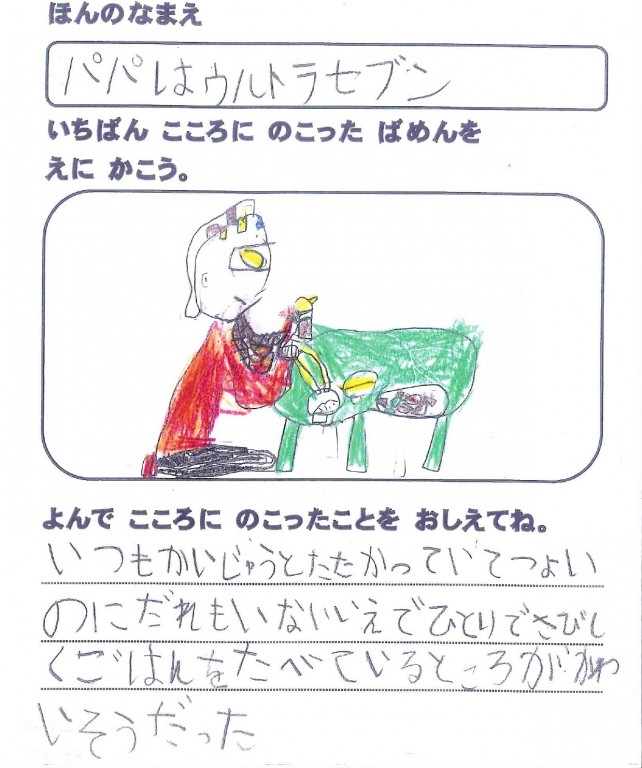 ほんのなまえ
パパはウルトラセブン
いちばん こころに のこった ばめんを
えに かこう。
よんで こころに のこったことを おしえてね。
いつもかいじゅうとたたかっていてつよい
のにだれもいないいえでひとりでさびし
くごはんをたべているところがかわ
いそうだった